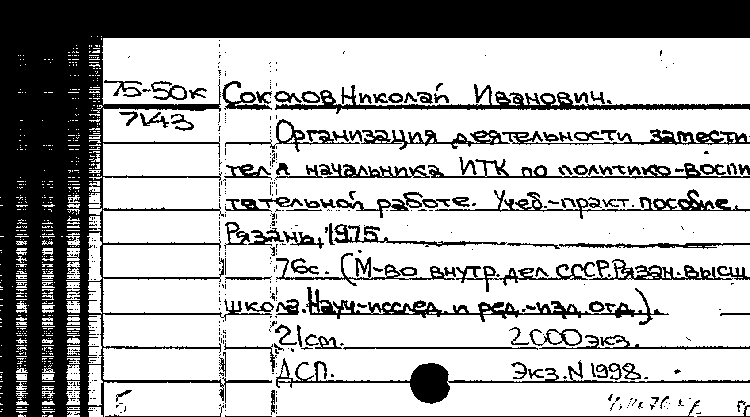 75-50к Соколов, Николай Иванович.
7143
Организация деятельности замести-
теля начальника ИТК по политико-воспи-
тательной работе. Учеб.-практ. пособие.
Рязань, 1975.
76с. (М-во внутр. дел СССР. Рязан. высш.
школа. Науч.-исслед. и ред.-изд. отд.).
21см. 2000 экз.
ДСП. Экз. N 1998.
5